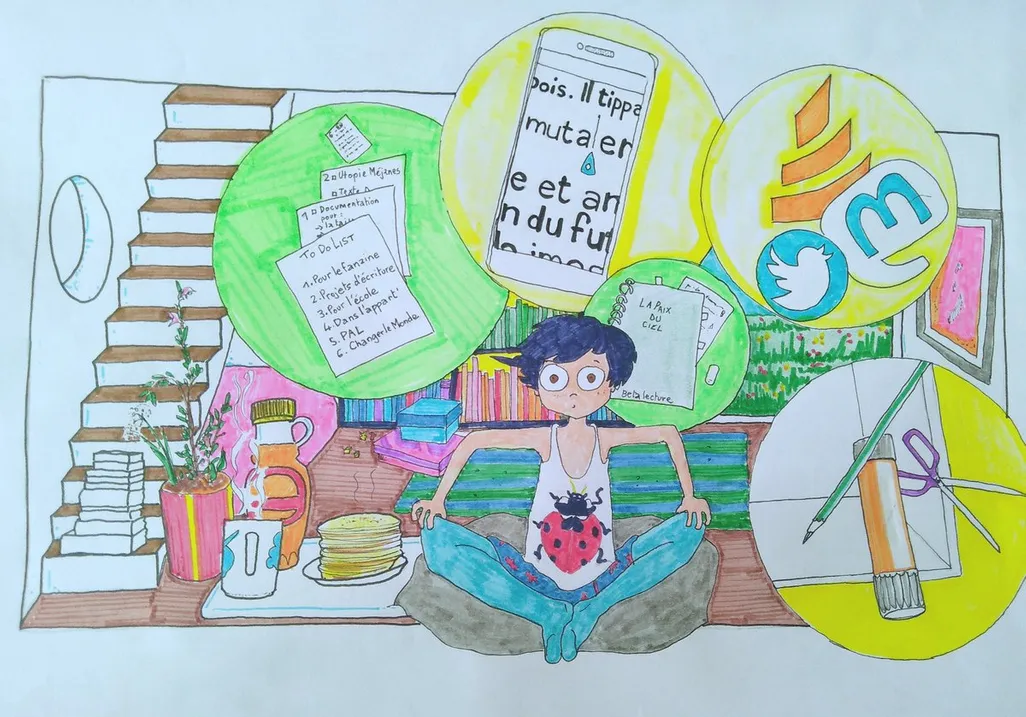 2 Utopie Méjènes
Texte
1 Documentation
pour :
To Do LIST
1. Pour le fanzine
2. Projets d'écriture
3. Pour l'école
4. Dans l'appart'
5. PAL
6. Changer le Monde
pois. Il tippa
muta er
e et an
n du fut
LA PAIX
DU
CIEL
Beta lecture
m